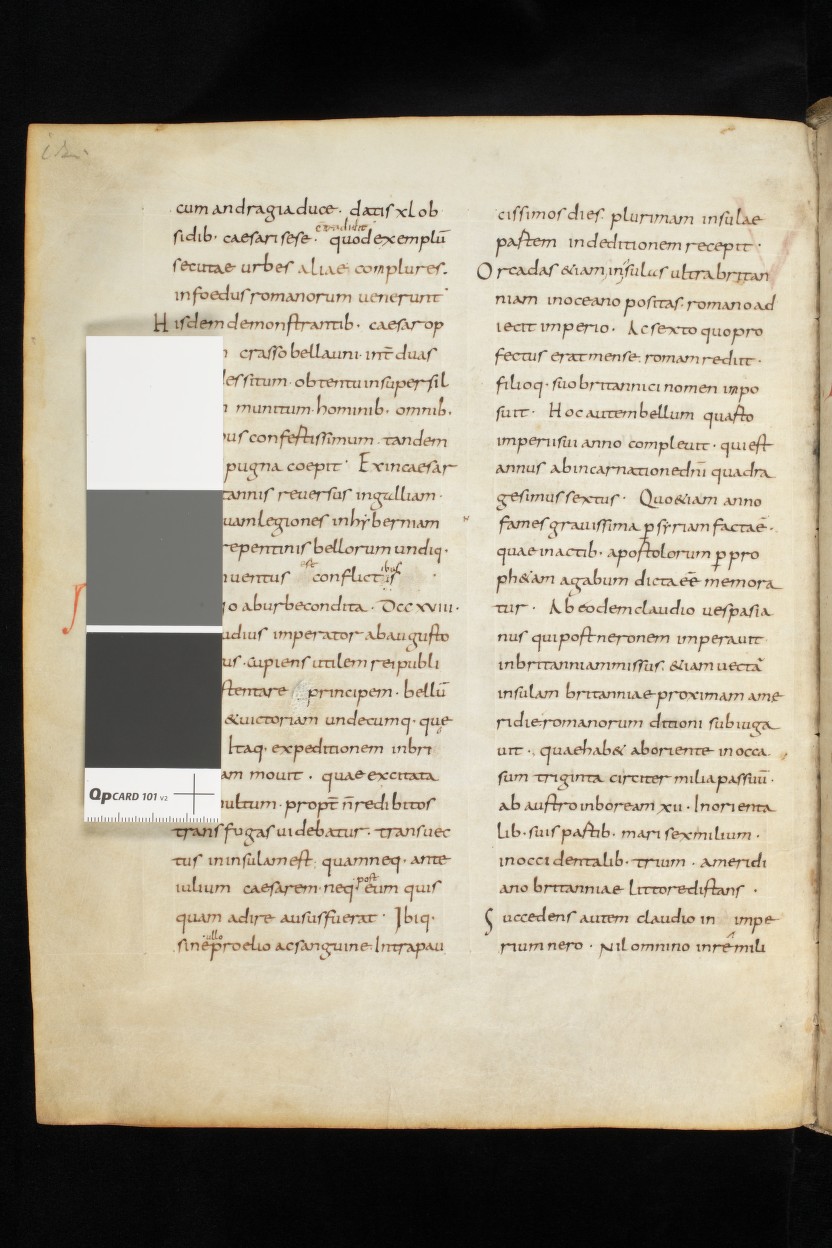 cum andragia duce · datis xl ob
sidib· caesari sese · quod exemplū
et radidit
secutae urbes aliae complures ·
in foedus romanorum uenerunt
Hisdem demonstrantib· caesar op
crasso bellauni · int̄ duas
obtentu insuper sil
munitum · hominib· omnib·
confertissimum · tandem
pugna coepit · Exin caesar
reuersus in galliam ·
legiones in hyberniam
repentinis bellorum undiq·
conflictibus
est
ab urbe condita · Dcc xviii ·
imperator ab augusto
cupiens utilem rei publi
principem · bellū
& uictoriam undecumq· que
Itaq· expeditionem in bri
mouit · quae excitata
propt̄ n̄ redibitos
transfugas uidebatur · transuec
tus in insulam est · quam neq· ante
iulium caesarem · neq· eum quis
post
quam adire ausus fuerat · Ibiq·
sine proelio ac sanguine · Intra pau
ullo
cissimos dies · plurimam insulae
partem in deditionem recepit ·
Orcadas &iam insulas ultra britan
niam in oceano positas · romano ad
iecit imperio · Ac sexto quo pro
fectus erat mense · romam rediit ·
filioq· suo britannici nomen inpo
suit · Hoc autem bellum quarto
imperii sui anno compleuit · qui est
annus ab incarnatione dn̄i quadra
gesimus sextus · Quo &iam anno
fames grauissima ꝑ syriam facta ē ·
quae in actib· apostolorum ꝑ pro
ph&am agabum dicta eē memora
tur · Ab eodem claudio uespasia
nus qui post neronem imperauit
in britanniam missus · &iam uectā
insulam britanniae proximam a me
ridie romanorum ditioni subiuga
uit · quae hab& ab oriente in occa
sum triginta circiter milia passuū ·
ab austro in boream xii · In orienta
lib· suis partib· mari sex milium ·
in occidentalib· trium · a meridi
ano britanniae littore distans ·
Succedens autem claudio in impe
rium nero · Nil omnino in re mili
QPCARD 101 v2